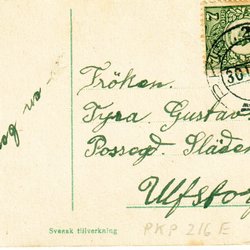 Fröken.
Tyra Gustav
Possegd. Släden
Ulfstor
Svensk tillverkning
PKP 216 E
30